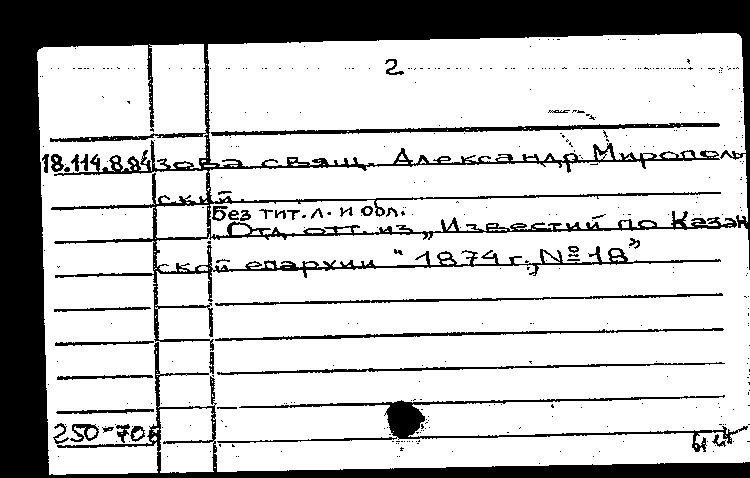 2.
18.114.8.84 зова свящ. Александр Мирополь
ский.
Без тит. л. и обл.
„Отд. отт. из „Известий по Казан
ской епархии“ 1874 г., № 18”
250-70